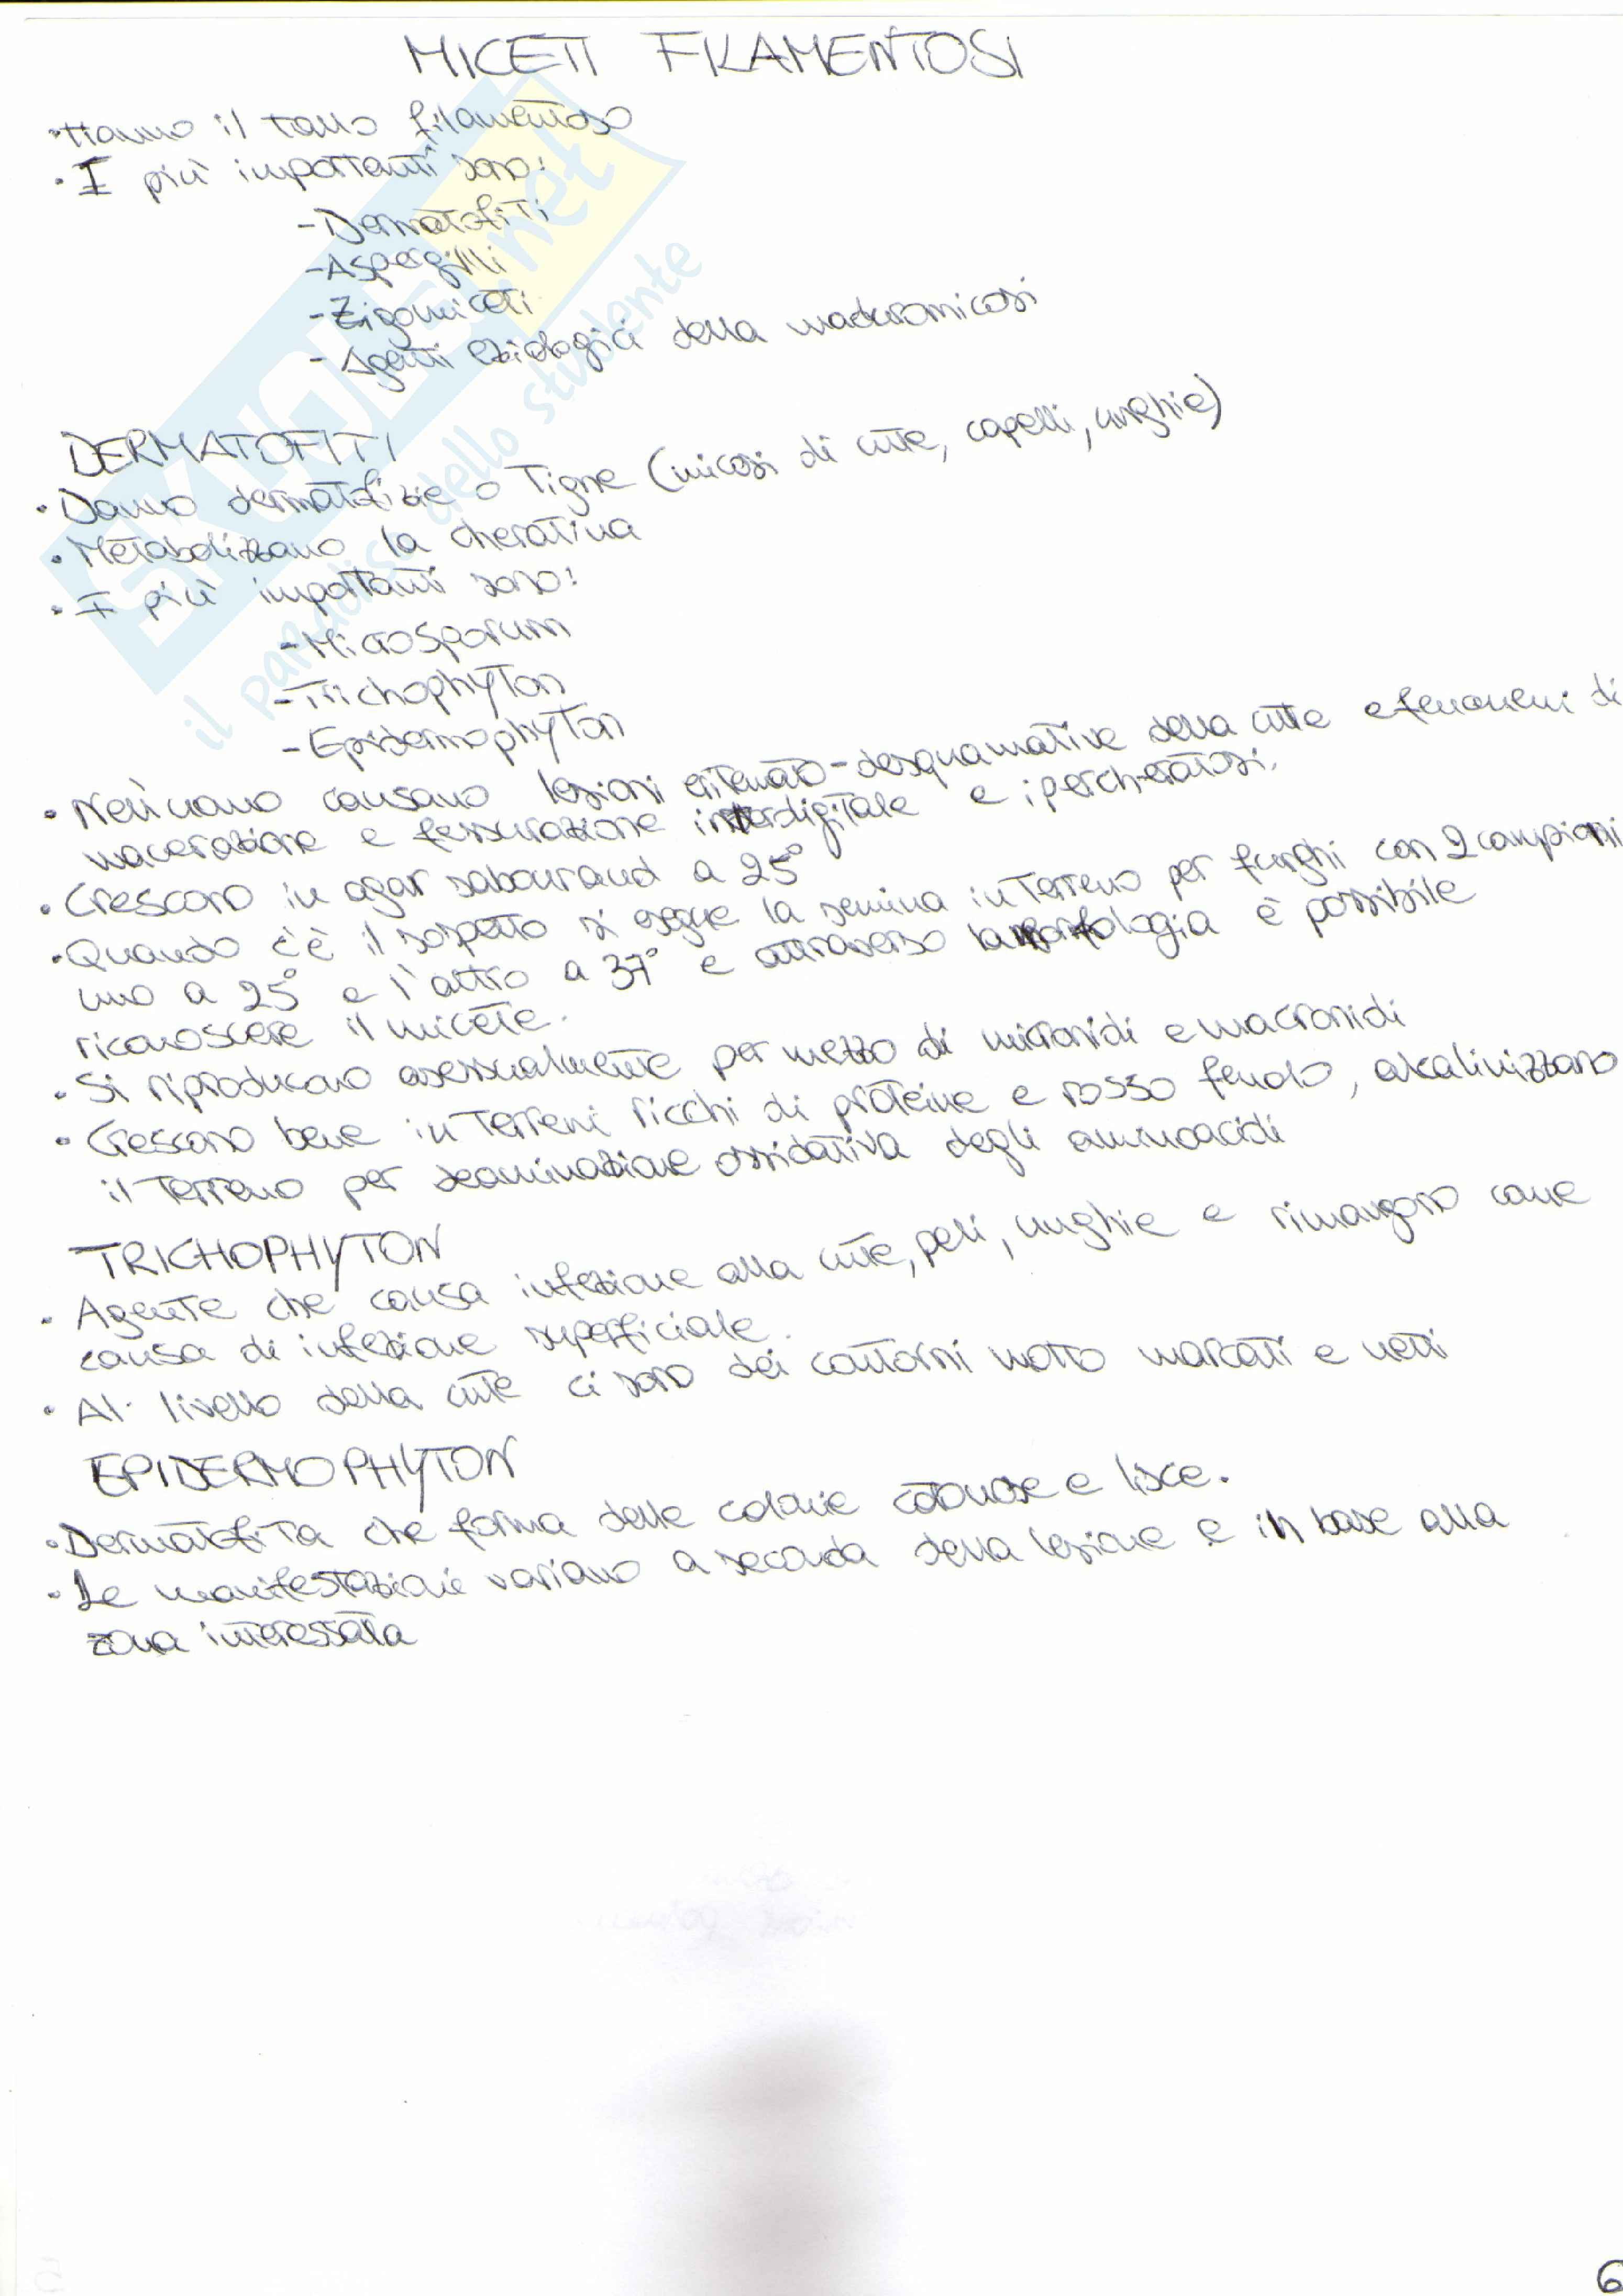 MICETI FILAMENTOSI
• Hanno il tallo filamentoso
• I più importanti sono:
- Dermatofiti
- Aspergilli
- Zigomiceti
- Agenti eziologici della maduromicosi
DERMATOFITI
• Danno dermatofizie o Tigne (micosi di cute, capelli, unghie)
• Metabolizzano la cheratina
• I più importanti sono:
- Microsporum
- Trichophyton
- Epidermophyton
• Nell'uomo causano lesioni eritemato-desquamative della cute e fenomeni di
macerazione e fessurazione interdigitale e ipercheratosi.
• Crescono in agar sabouraud a 25°
• Quando c'è il sospetto si esegue la semina in Terreno per funghi con 2 campioni
uno a 25° e l'altro a 37° e attraverso la morfologia è possibile
riconoscere il micete.
• Si riproducono asessualmente per mezzo di micronidi e macronidi
• Crescono bene in Terreni ricchi di proteine e rosso fenolo, alcalinizzano
il Terreno per deaminazione ossidativa degli aminoacidi
TRICHOPHYTON
• Agente che causa infezione alla cute, peli, unghie e rimangono come
causa di infezione superficiale.
• Al livello della cute ci sono dei contorni molto marcati e netti
EPIDERMOPHYTON
• Dermatofita che forma delle colonie cotonose e lisce.
• Le manifestazioni variano a seconda della lesione e in base alla
zona interessata
6
SKUOLA.net
il paradiso dello studente